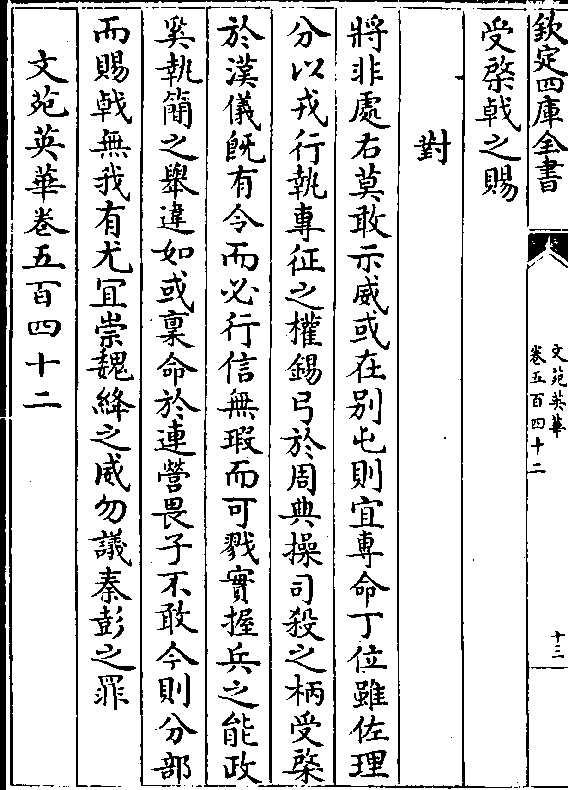 欽定四庫全書
文苑英華
卷五百四十二
十三
受棨戟之賜
對
將非處右莫敢示威或在別屯則宜専命丁位雖佐理
分以戎行執専征之權錫弓於周典操司殺之柄受棨
於漢儀既有令而必行信無瑕而可戮實握兵之能政
奚執簡之舉違如或稟命於連營畏子不敢今則分部
而賜戟無我有尤宜崇魏絳之威勿議秦彭之罪
文苑英華卷五百四十二